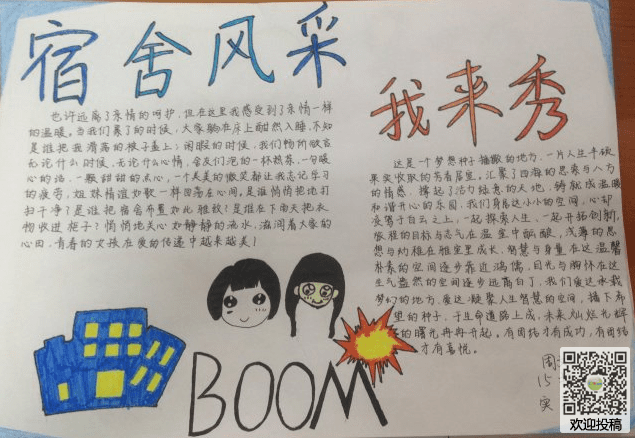 宿舍风采
我来秀
也许远离了亲情的呵护,但在这里我感受到了亲情一样
的温暖。当我们累了的时候,大家躺在床上酣然入睡,不知
是谁把我滑落的被子盖上;闲暇的时候,我们畅所欲言
无论什么时候,无论什么心情,舍友们泡的一杯热茶,一句暖
心的话,一颗甜甜的点心,一个美美的微笑都让我忘记学习
的疲劳,姐妹情谊如歌一样回荡在心间,是谁悄悄把地打
扫干净了?是谁把宿舍布置如此雅致?是谁在下雨天把衣
物收进柜子?悄悄地关心如静静的流水,滋润着大家的
心田,青春的女孩在爱的传递中越来越美!
这是个梦想种子播撒的地方,一片人生丰硕
果实收获的芳香居室,汇聚了四海的思索与八方
的情感,撑起了活力绿意的天地,铸就成温暖
和谐开心的乐园。我们身居这小小的空间,心却
驾于白云之上,一起探索人生,一起开拓创新,
旅程的目标与志气在温室中酝酿,浅薄的思
想与幼稚在雅室里成长,智慧与身量在这温馨
朴素的空间逐步靠近鸿儒,目光与胸怀在这
生气盎然的空间逐步远离白丁,我们爱这承载
梦幻的地方,爱这凝聚人生智慧的空间,播下希
望的种子,于生命道路上成,未来灿烂光辉
的曙光冉冉升起。有团结才有成功,有团结
才有喜悦。
周
15
实
BOOM
欢迎投稿